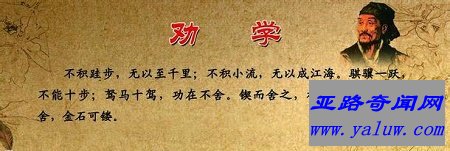 劝 学
不积跬步，无以至千里；不积小流，无以成江海。骐骥一跃，
不能十步；驽马十驾，功在不舍。锲而舍之，
舍，金石可镂。
亚路奇闻网
www.yaluw.com